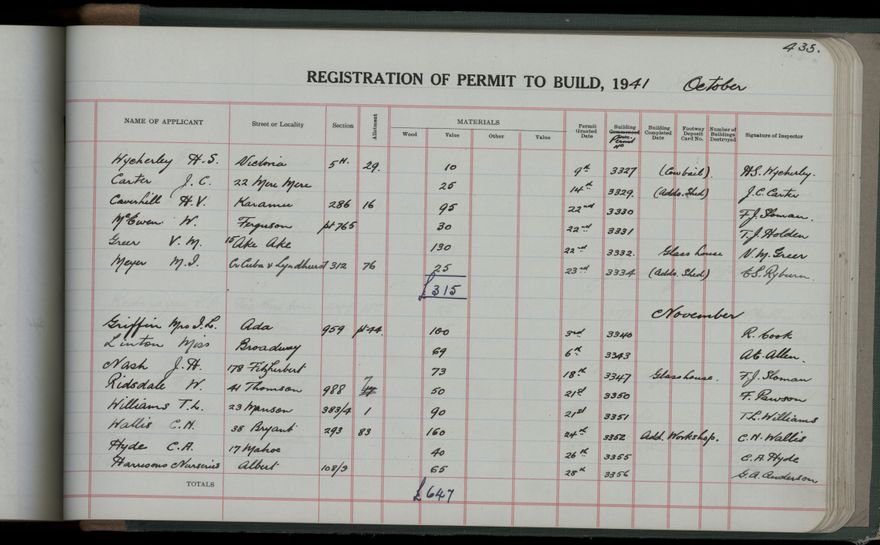 435.
REGISTRATION OF PERMIT TO BUILD, 1941 October
NAME OF APPLICANT Street or Locality Section Allotment MATERIALS Wood Value Other Value Permit Granted Date Building Commenced Permit No Building Completed Date Footway Deposit Card No. Number of Buildings Destroyed Signature of Inspector
Wycherley H.S. Victoria 5H. 29. 10 9th 3327 (Cow bail). H.S. Wycherley.
Carter J.C. 22 Mere Mere 25 14th 3329. (Addn. Shed) J.C. Carter
Caverhill H.V. Karamu 286 16 95 22nd 3330 F.J. Sloman.
McEwen W. Ferguson pt 765 30 22nd 3331 T.J. Holden
Greer V.M. 15 Ake Ake 130 22nd 3332. Glass house V.M. Greer
Meyer M.I. Cr Cuba & Lyndhurst 312 76 25 23rd 3334 (Addn. Shed) C.S. Ryburn.
£315
November
Griffin Mrs I.L. Ada 959 pt 44. 100 3rd 3340 R. Cook
Linton Miss Broadway 69 6th 3343 A.C. Allen.
Nash J.H. 178 Fitzherbert 73 18th 3347 Glasshouse. F.J. Sloman
Ridsdale W. 41 Thomson 988 7 50 21st 3350 F. Pawson
Williams T.L. 23 Manson 383/4 1 90 21st 3351 T.L. Williams
Wallis C.N. 38 Bryant 293 83 160 24th 3352 Add. Workshop. C.N. Wallis
Hyde C.A. 17 Mahoe 40 26th 3355 C.A. Hyde
Harrisons Nurseries Albert 108/9 65 28th 3356 G.A. Anderson
TOTALS £647